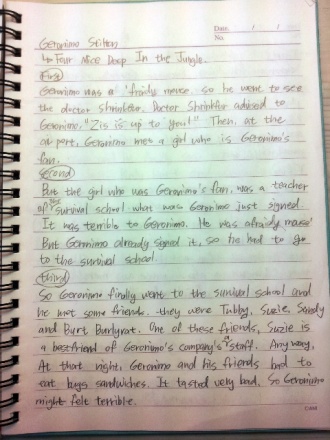 Date. / /
No.
Geronimo Stilton
↳ Four Mice Deep In the Jungle.
First
Geronimo was a 'fraidy mouse. so he went to see
the doctor Shrinkfur. Doctor Shrinkfur advised to
Geronimo, "Zis is up to you!" Then, at the
air port, Geronimo met a girl who is Geronimo's
fan.
second
But the girl who was Geronimo's fan, was a teacher
of the survival school what was Geronimo just signed.
It was terrible to Geronimo. He was afraidy mouse'
But Geronimo already signed it, so he had to go
to the survival school.
third
So Geronimo finally went to the survival school and
he met some friends. they were Tubby, Suzie, Sandy
and Burt Burlyrat. One of these friends, Suzie is
a bestfriend of Geronimo's company's a staff. Any way,
At that night, Geronimo and his friends had to
eat bugs sandwiches. It tasted very bad. So Geronimo
might felt terrible.